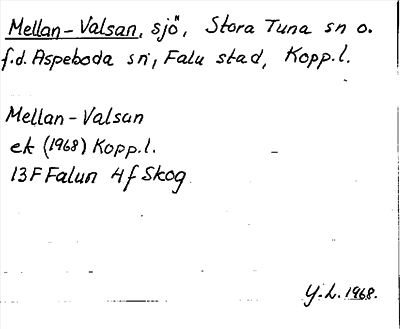 Mellan-Valsan, sjö, Stora Tuna sn o.
f.d. Aspeboda sn, Falu stad, Kopp.l.
Mellan-Valsan
ek (1968) Kopp.l.
13F Falun 4f Skog
Y.L. 1968.